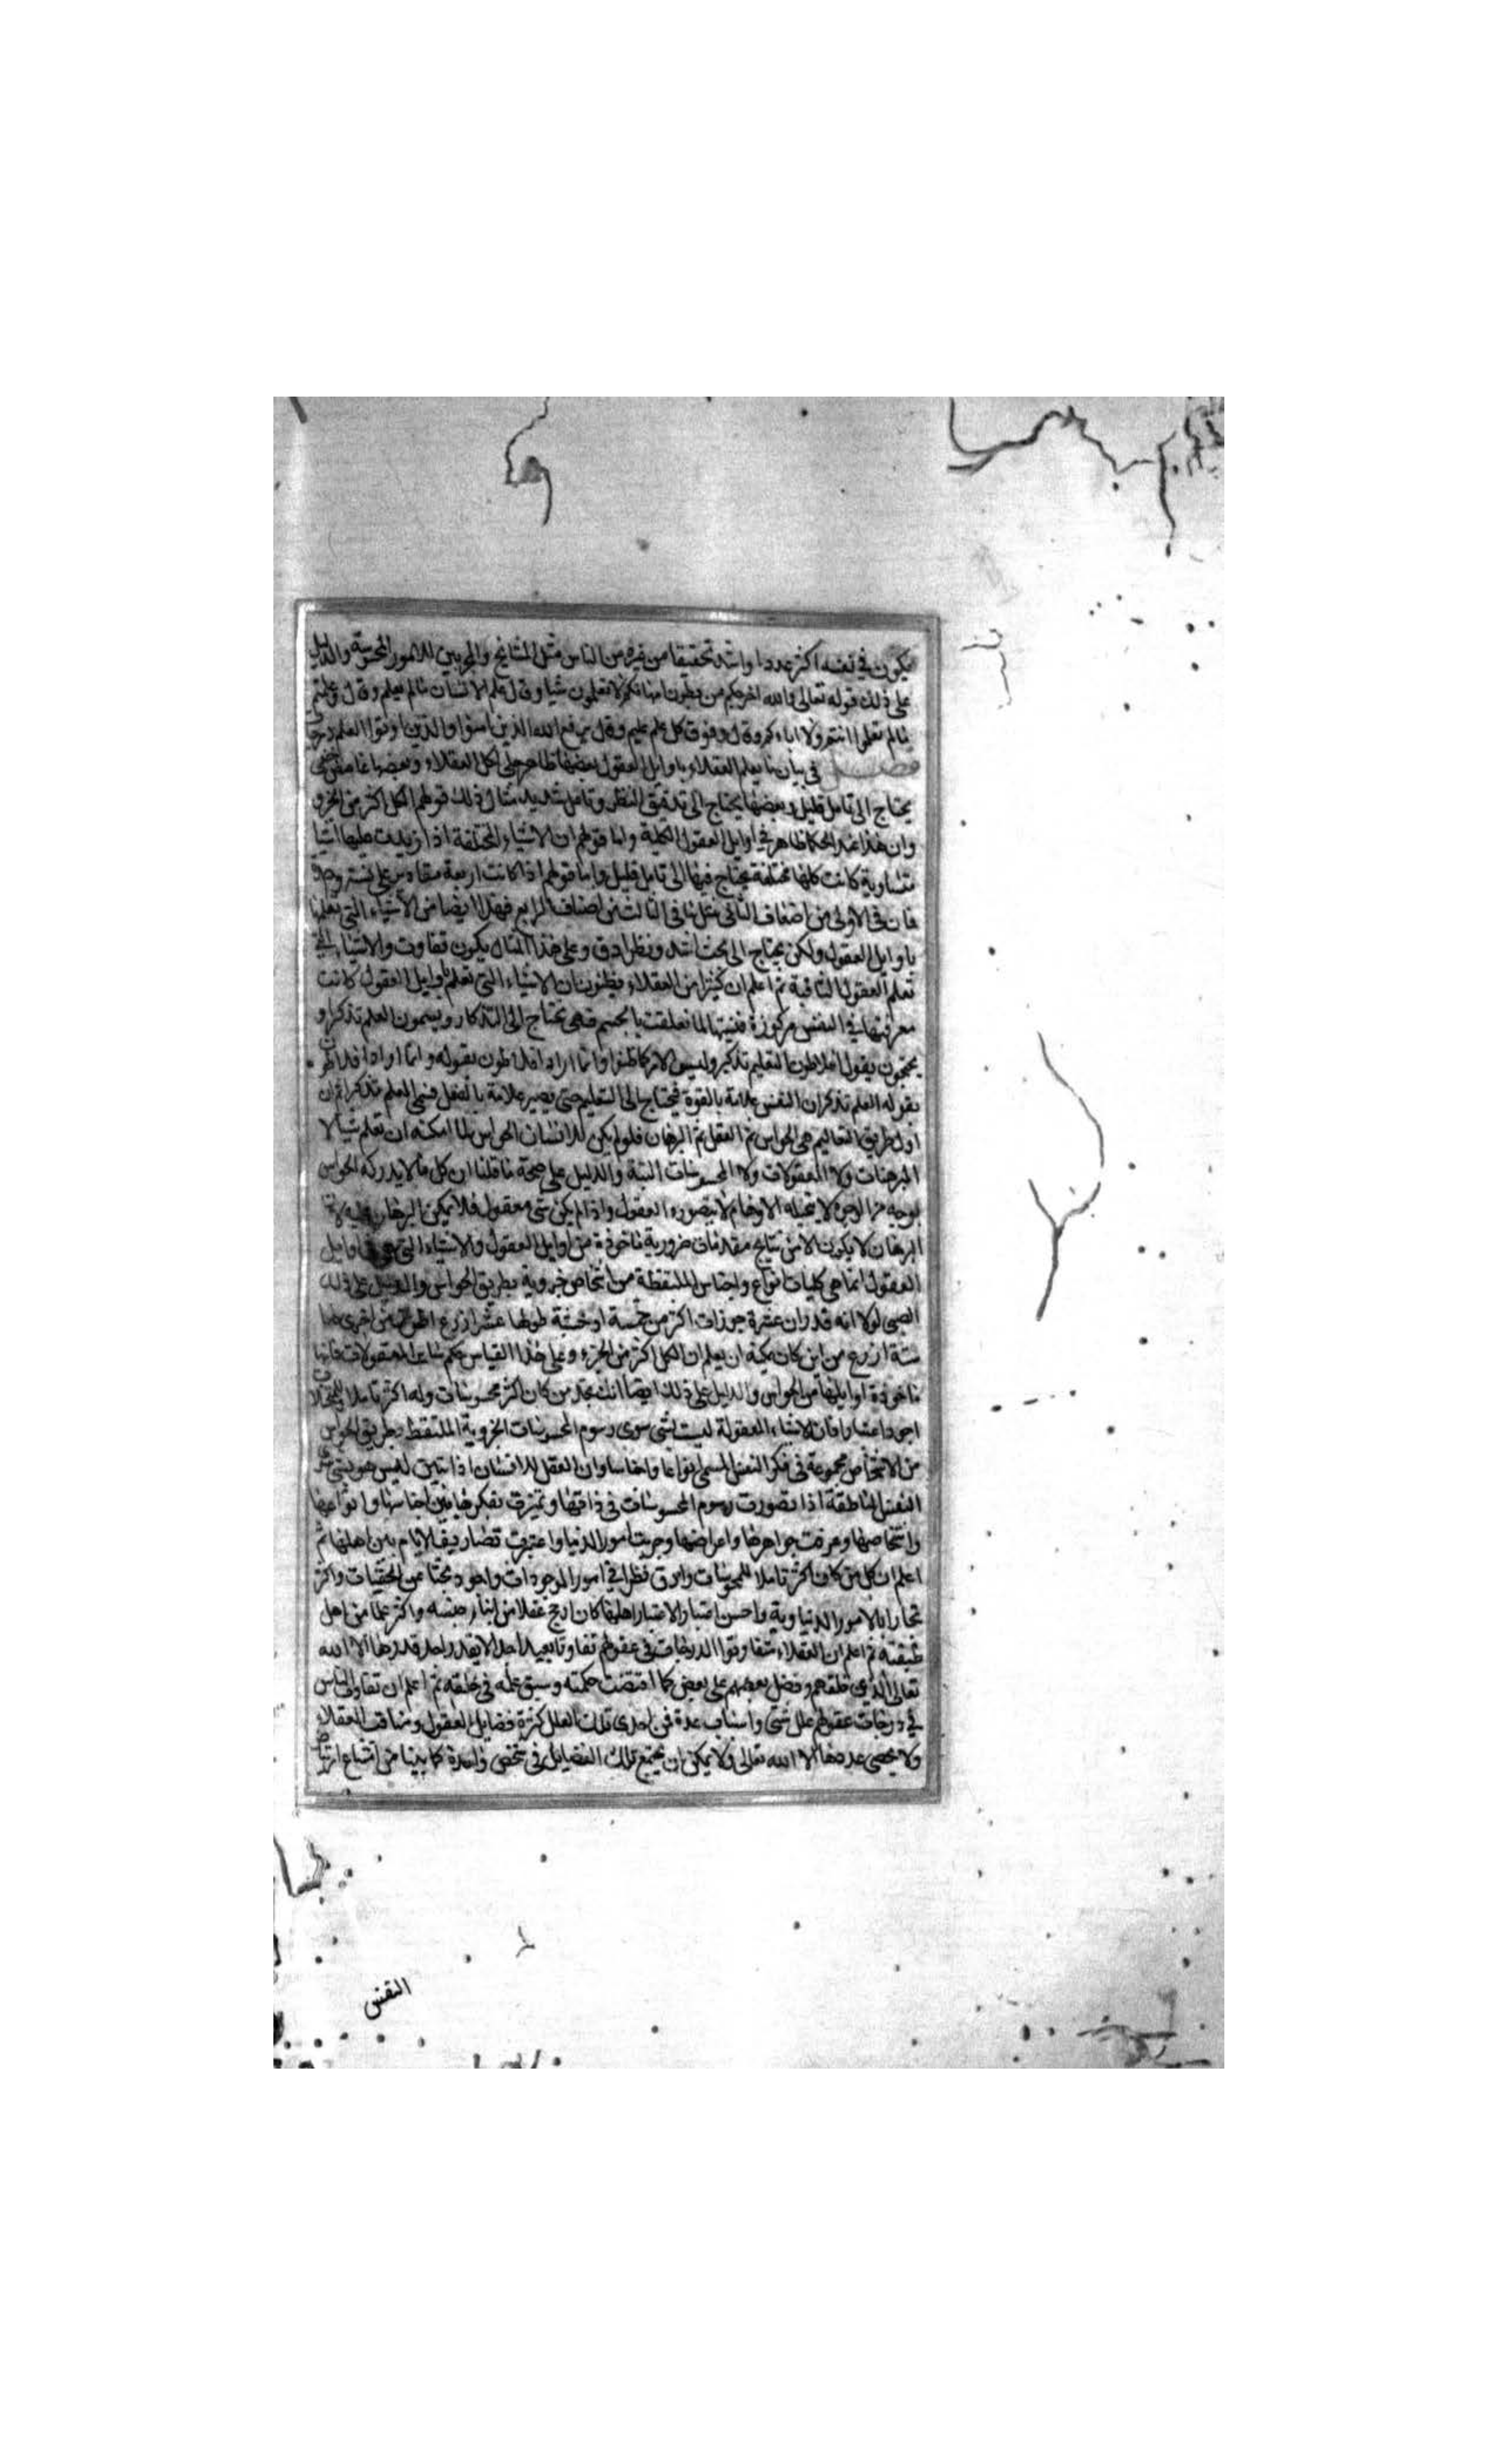 يكون في نفسه اكثر عددا واشد تحقيقا من غيره من الناس مثل المشايخ والمجربين للامور المحسوسة والدليل
على ذلك قوله تعالى والله اخرجكم من بطون امهاتكم لا تعلمون شيا وقال علم الانسان مالم يعلم وقال وعلمتم
مالم تعلموا انتم ولا اباءكم وقال وفوق كل علم عليم وقال يرفع الله الذين امنوا والذين اوتوا العلم درجات
فصل في بيان ما يعلم العقلاء باوايل العقول بعضها ظاهر جلي لكل العقلاء وبعضها غامض خفي
يحتاج الى تامل قليل وبعضها يحتاج الى تدقيق النظر وتامل شديد مثال ذلك قولهم الكل اكثر من الجزو
وان هذا عند الحكما ظاهر في اوايل العقول الكلية واما قولهم ان الاشياء المختلفة اذا زيدت عليها اشيا
متساوية كانت كلها مختلفة يحتاج فيها الى تامل قليل واما قولهم اذا كانت اربعة مقادير على نسبة
فان في الاولى من اضعاف الثاني مثل ما في الثالث من اضعاف الرابع فهذا ايضا من الاشياء التي يعلمها
باوايل العقول ولكن يحتاج الى بحث اشد ونظر ادق وعلى هذا المثال يكون تفاوت والاشياء التي
تعلم العقول الثاقبة ثم اعلم ان كثيرا من العقلاء يظنون ان الاشياء التي تعلم باوايل العقول كانت
معرفتها في النفس مركوزة فنسيتها لما تعلقت بالجسم فهي تحتاج الى التذكار ويسمون العلم تذكرا و
يحتجون بقول افلاطون التعليم تذكير وليس الامر كما ظنوا وانما اراد افلاطون بقوله وانما اراد افلاطون
بقوله العلم تذكر ان النفس علامة بالقوة فيحتاج الى التعليم حتى يصير علامة بالفعل فسمي العلم تذكيرا ثم ان
اول طريق التعاليم هي الحواس ثم العقل ثم البرهان فلو لم يكن للانسان الحواس لما امكنه ان تعلم شيا لا
المبرهنات ولا المعقولات ولا المحسوسات البتة والدليل على صحة ما قلنا ان كل ما لا يدركه الحواس
بوجه من الوجوه لا يتخيله الاوهام لا يتصوره العقول واذا لم يكن شي معقول فلا يمكن البرهان عليه لان
البرهان لا يكون الا من نتايج مقدمات ضرورية ماخوذة من اوايل العقول والاشياء التي هي في اوايل
العقول انما هي كليات انواع واجناس الملتقطة من اشخاص جزوية بطريق الحواس والدليل على ذلك
الصبي لولا انه قد ران عشرة جوزات اكثر من خمسة او خشبة طولها عشر اذرع اطول من اخرى
ستة اذرع من اين كان يمكنه ان يعلم ان الكل اكثر من الجزء وعلى هذا القياس حكم ساير المعقولات فانها
ماخوذة اوايلها من الحواس والدليل على ذلك ايضا انك تجد من كان اكثر محسوسات وله اكثر تاملا
اجود اعتبارا فان الاشياء المعقولة ليست بشي سوى رسوم المحسوسات الجزوية الملتقطة بطريق الحواس
من الاشخاص مجموعة في فكر النفس المسمى انواعا واجناسا وان العقل للانسان اذا تبين ليس هو بشي سوى
النفس الناطقة اذا تصورت رسوم المحسوسات في ذاتها وتميزت بفكرها بين اجناسها وانواعها
واشخاصها وعرفت جواهرها واعراضها وجربت امور الدنيا واعتبرت تصاريف الايام بين اهلها ثم
اعلم ان كل من كان اكثر تاملا للمحسوسات وادق نظرا في امور الموجودات واجود بحثا عن الخفيات واكثر
تجاربا بالامور الدنياوية واحسن اعتبارا لاعتبار اهلها كان ارجح عقلا من ابناء جنسه واكثر علما من اهل
طبقته ثم اعلم ان العقلاء متفاوتوا الدرجات في عقولهم تفاوتا بعيدا جدا لا يقدر احد قدرها الا الله
تعالى الذي خلقهم وفضل بعضهم على بعض كما اقتضت حكمته وسبق علمه في خلقه ثم اعلم ان تفاوت الناس
في درجات عقولهم علل شتى واسباب عدة فمن احدى تلك العلل كثرة فضايل العقول ومناقب العقلاء
ولا يحصي عددها الا الله تعالى ولا يمكن ان يجتمع تلك الفضايل في شخص واحدة كما بينا من امتناع
النفس